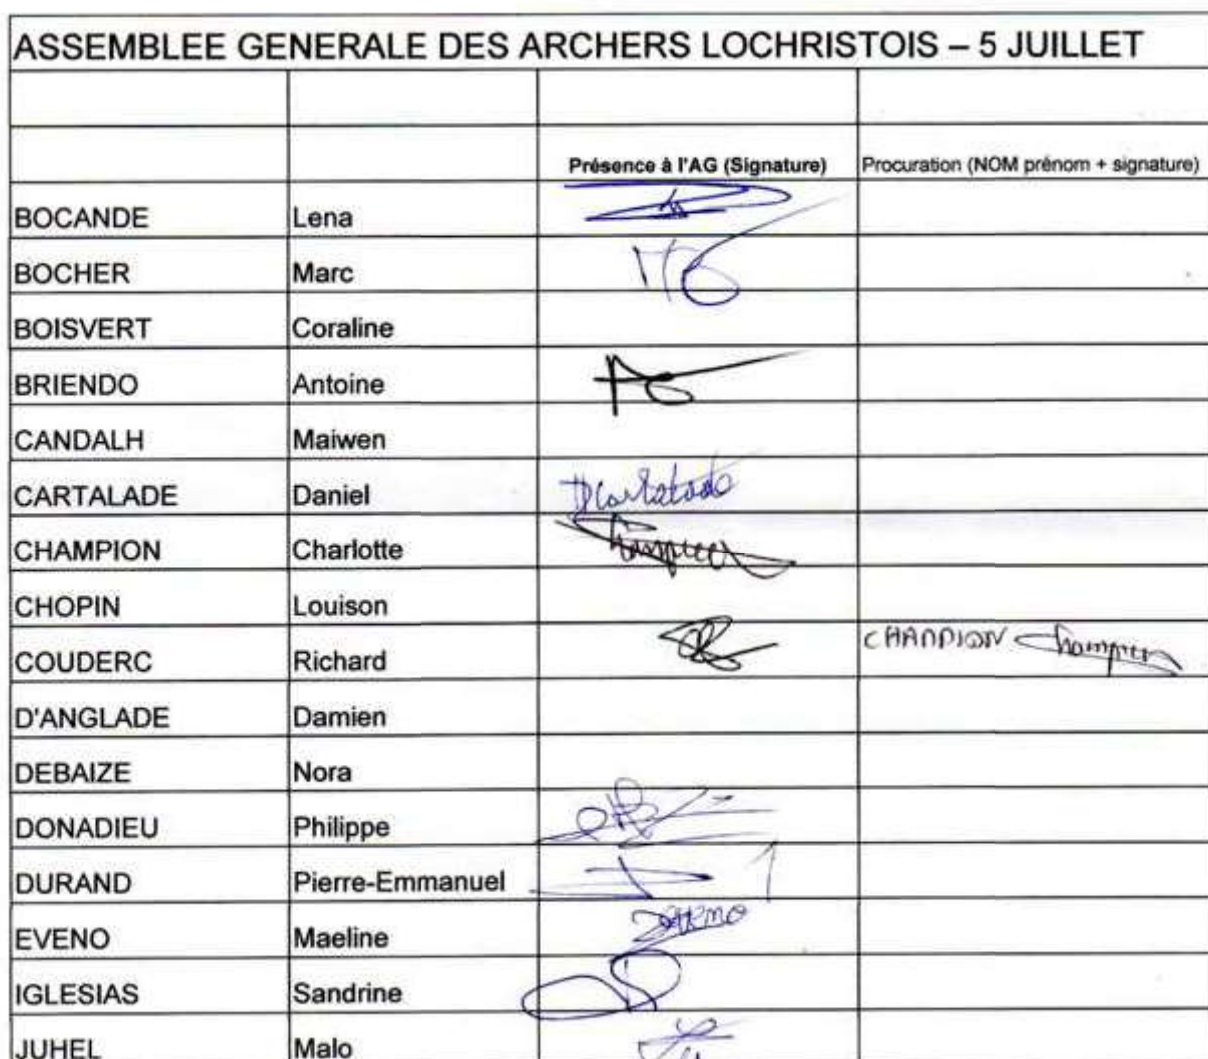 ASSEMBLEE GENERALE DES ARCHERS LOCHRISTOIS – 5 JUILLET
Présence à l'AG (Signature) Procuration (NOM prénom + signature)
BOCANDE Lena
BOCHER Marc
BOISVERT Coraline
BRIENDO Antoine
CANDALH Maiwen
CARTALADE Daniel DCartalade
CHAMPION Charlotte Champion
CHOPIN Louison
COUDERC Richard CHAMPION Champion
D'ANGLADE Damien
DEBAIZE Nora
DONADIEU Philippe
DURAND Pierre-Emmanuel
EVENO Maeline
IGLESIAS Sandrine
JUHEL Malo